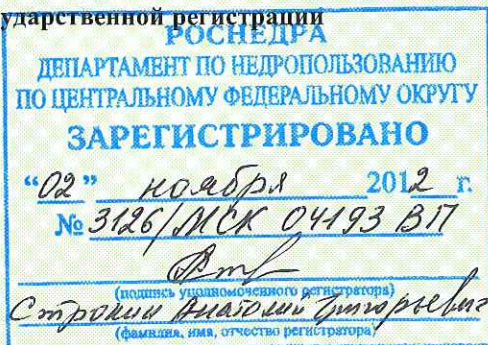 ударственной регистрации
РОСНЕДРА
ДЕПАРТАМЕНТ ПО НЕДРОПОЛЬЗОВАНИЮ
ПО ЦЕНТРАЛЬНОМУ ФЕДЕРАЛЬНОМУ ОКРУГУ
ЗАРЕГИСТРИРОВАНО
"02" ноября 2012 г.
№ 3126/МСК 04193 ВП
(подпись уполномоченного регистратора)
Строкин Анатолий Григорьевич
(фамилия, имя, отчество регистратора)